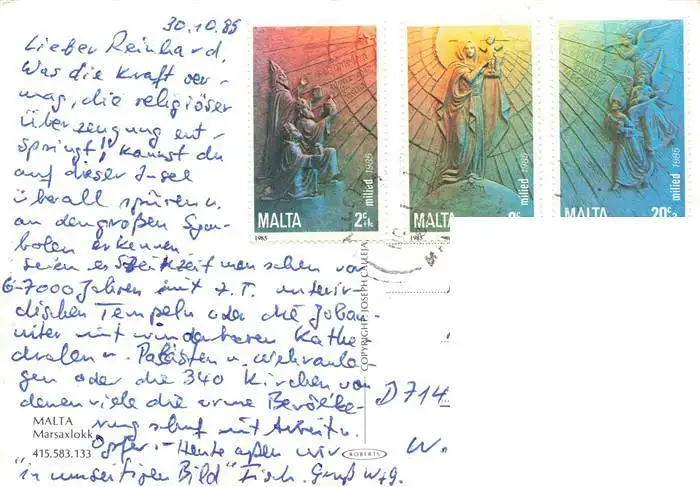 30.10.85
Lieber Reinhard,
Was die Kraft ver-
mag, die religiöser
Überzeugung ent-
springt, kannst du
auf dieser Insel
überall spüren u.
an den großen Sym-
bolen erkennen
Seien es Steinzeitmenschen vor
6-7000 Jahren mit z.T. unterir-
dischen Tempeln oder die Johan-
niter mit wunderbaren Kathe-
dralen u. Palästen u. Wehranla-
gen oder die 340 Kirchen von
denen viele die arme Bevölke-
rung schuf mit Arbeit u.
Opfer. - Heute aßen wir
"in umseitigen Bild" Fisch. Gruß W+G.
MALTA
Marsaxlokk
415.583.133
MALTA 2c+1c
milied 1985
1985
MALTA 8c
milied 1985
1985
MALTA 20c+3
milied 1985
COPYRIGHT JOSEPH CALLEJA
ROBERTS
D 714
W.